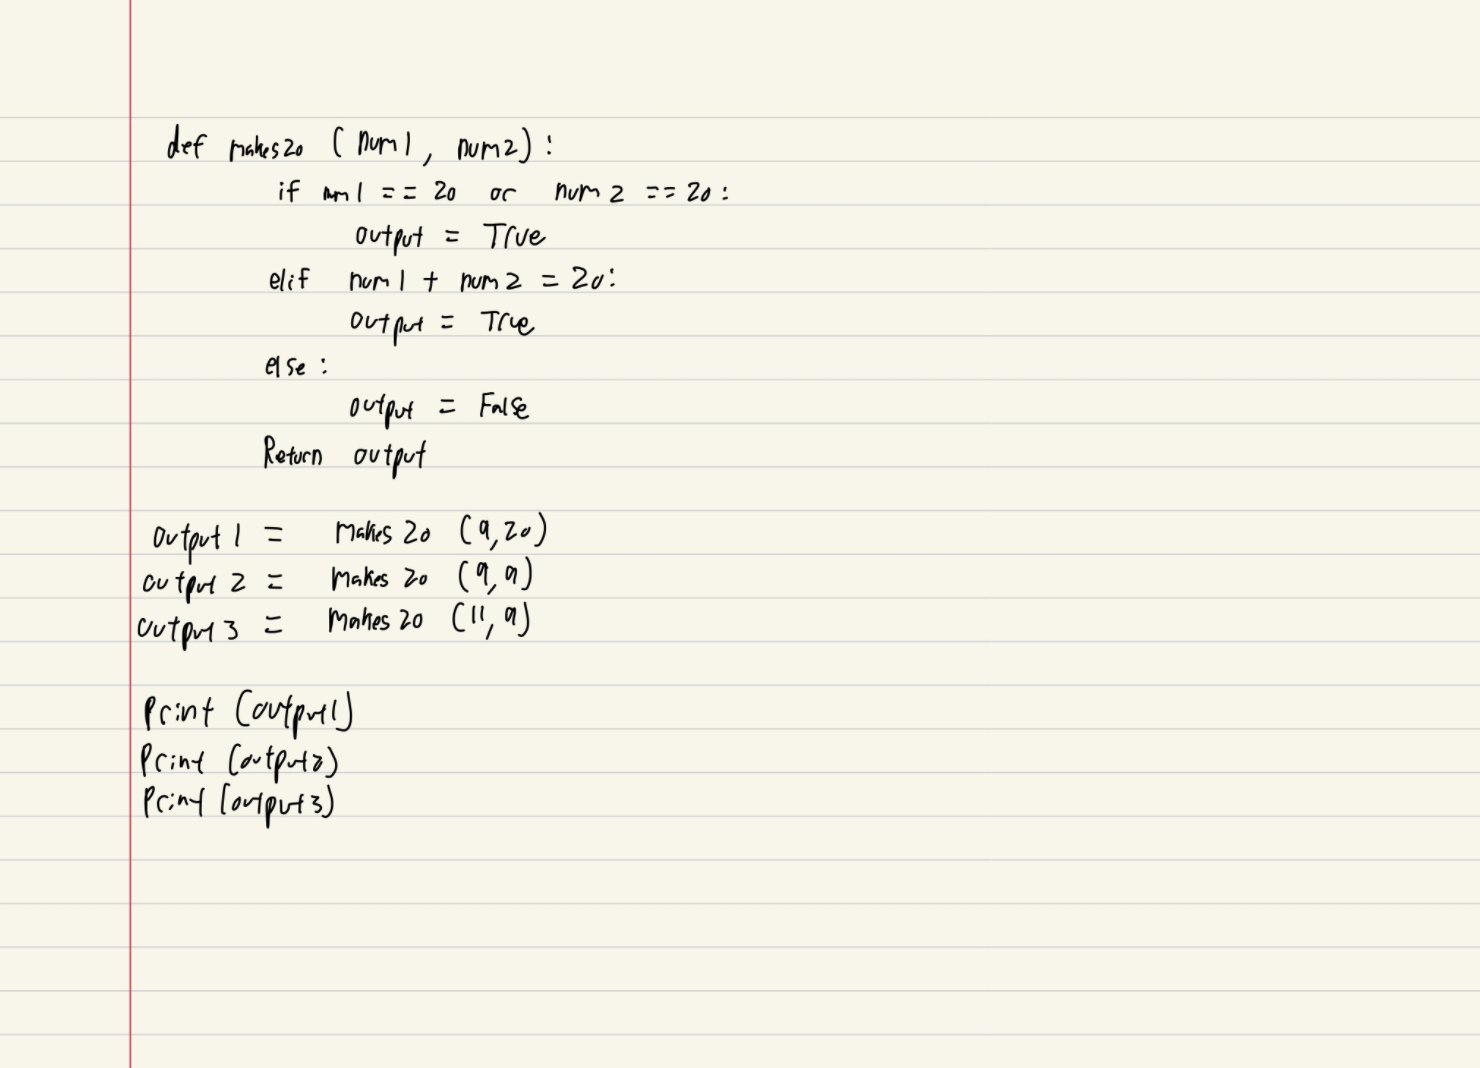 def makes20 (num1, num2):
if num1 == 20 or num2 == 20:
output = True
elif num1 + num2 = 20:
output = True
else:
output = False
Return output
output1 = makes20 (9,20)
output2 = makes20 (9,9)
output3 = makes20 (11,9)
Print (output1)
Print (output2)
Print (output3)